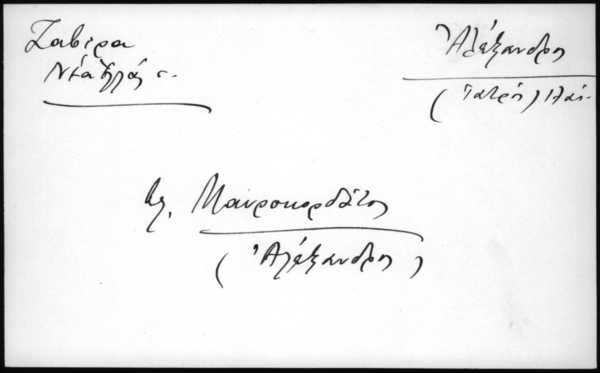 Ζαβίρα
Νέα Ἑλλάς
Ἀλέξανδρος
(Ἰατρός)
βλ. Μαυροκορδάτος
(Ἀλέξανδρος)